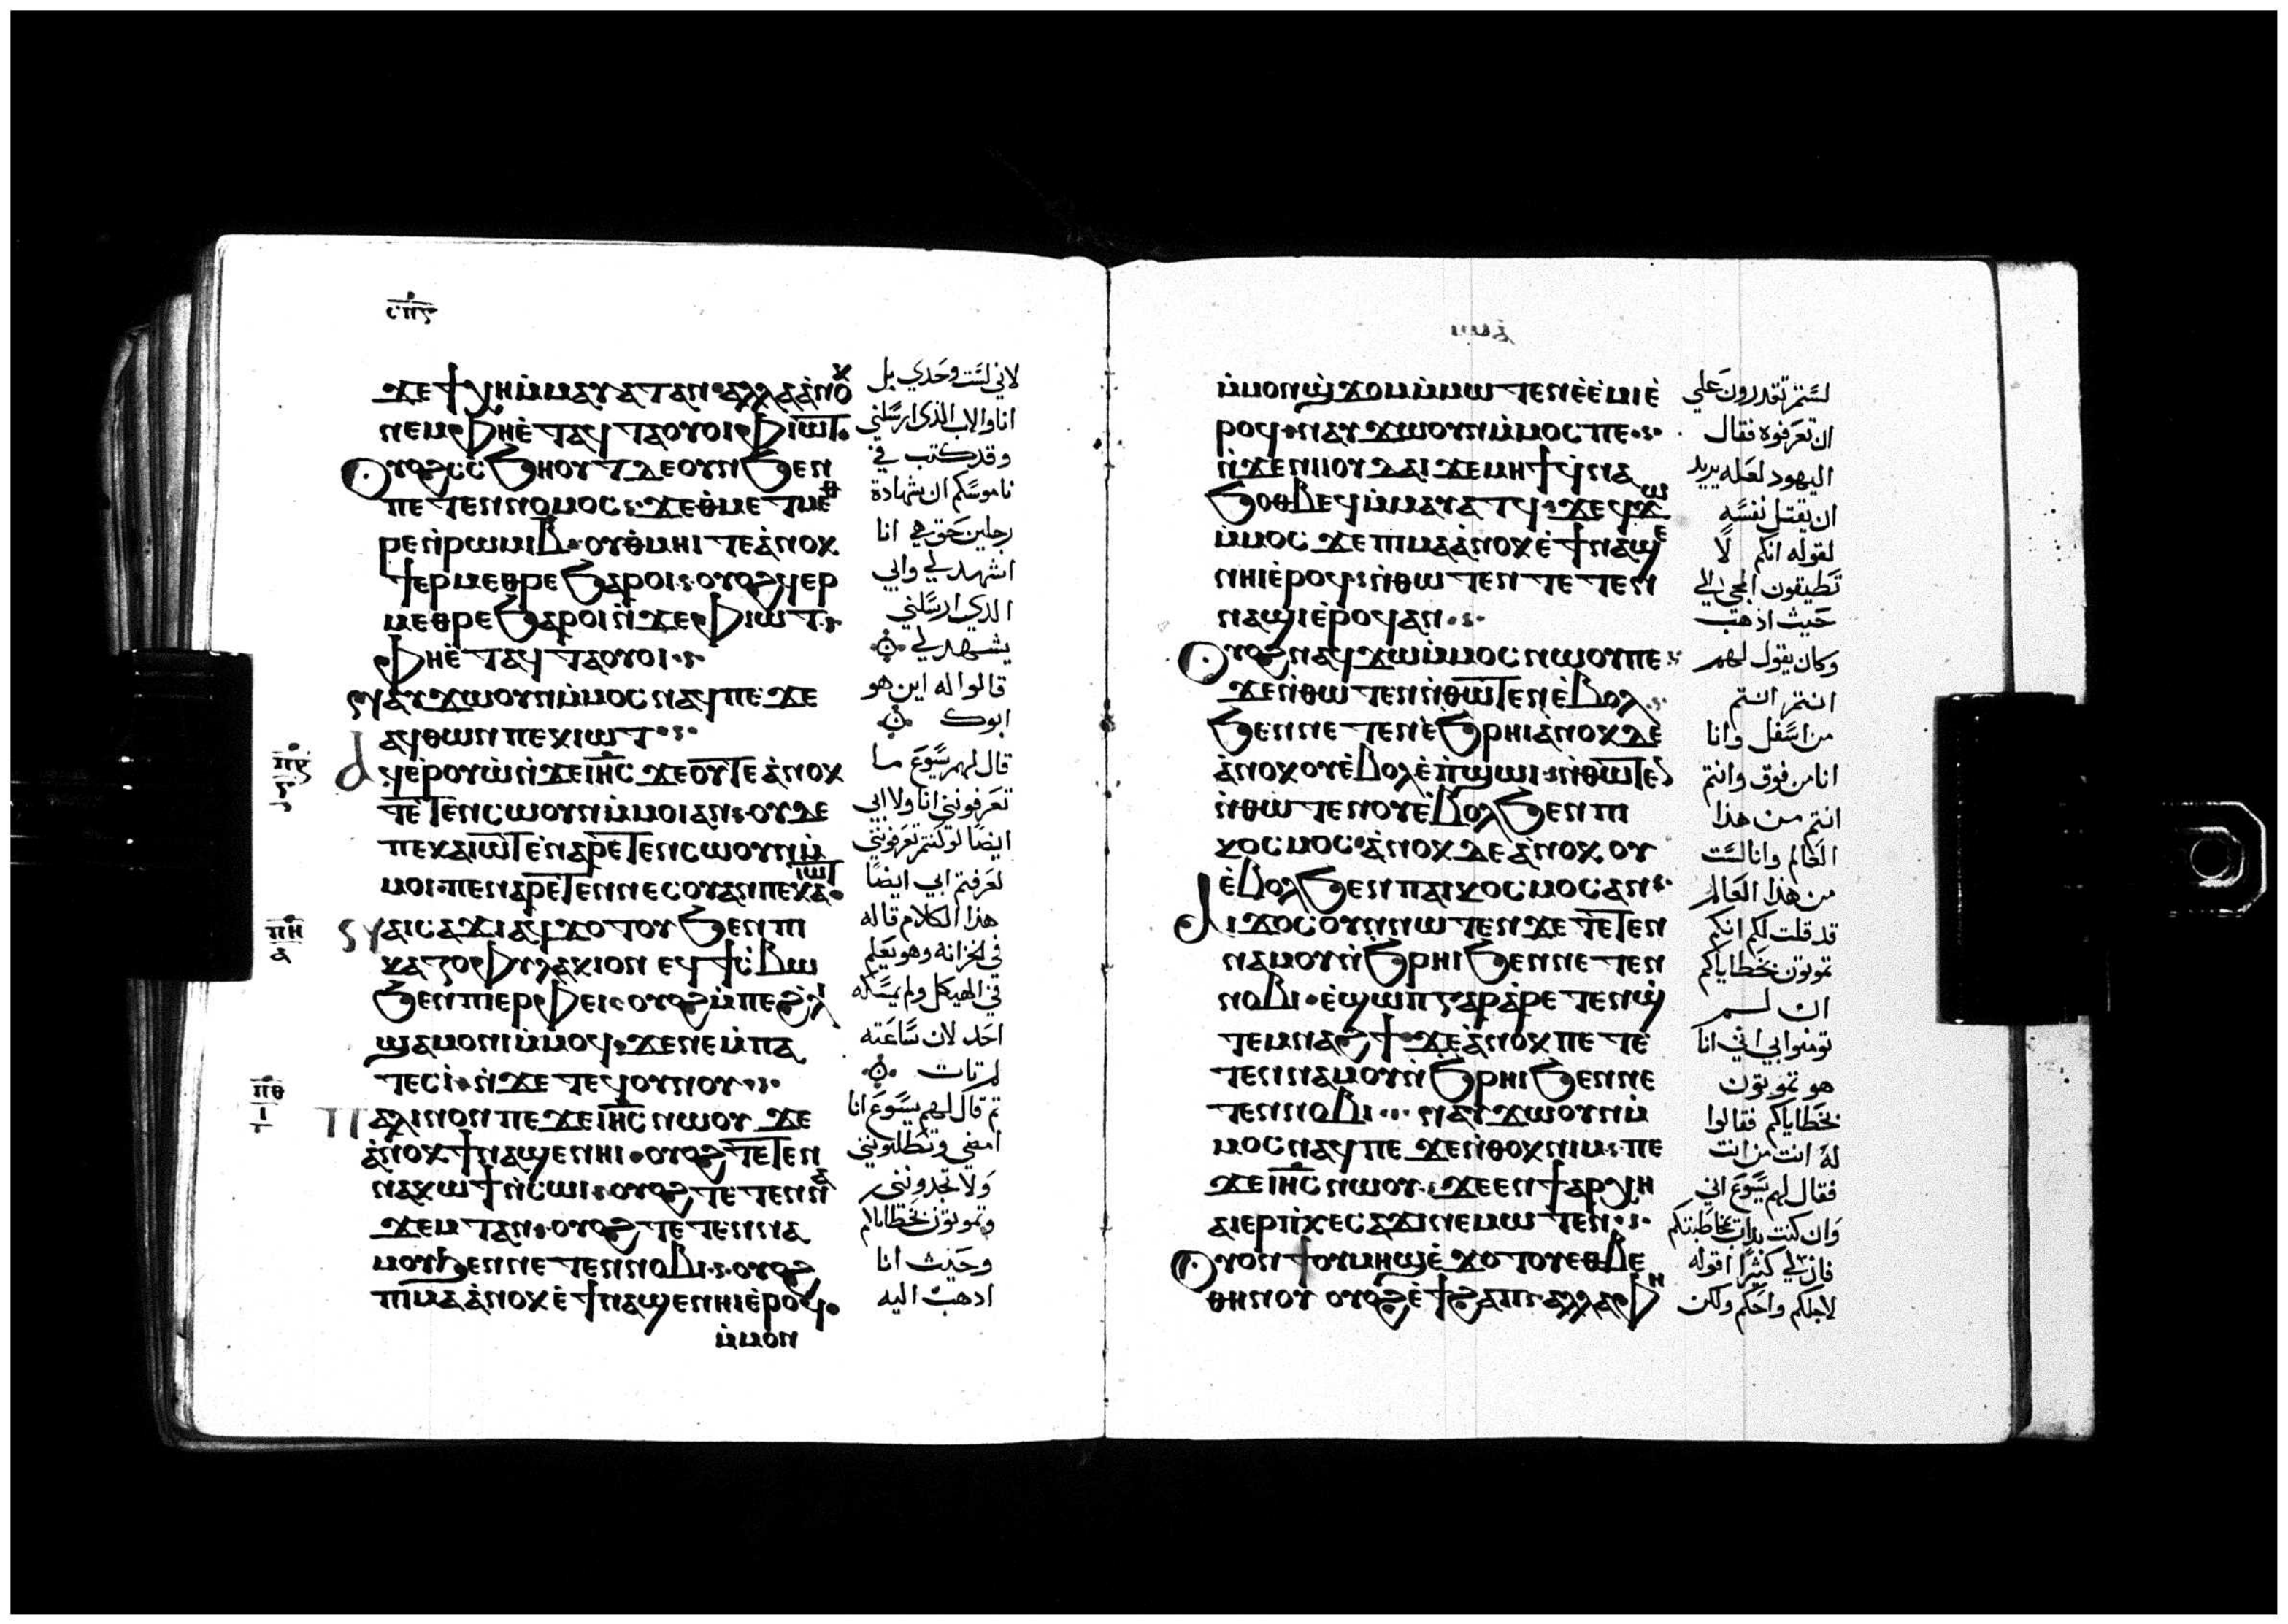 ⲥⲡⲋ
ϫⲉϯⲭⲏⲙⲙⲁⲩⲁⲧⲁⲛ·ⲁⲗⲗⲁⲁⲛⲟⲕ
ⲛⲉⲙⲫⲏⲉⲧⲁϥⲧⲁⲟⲩⲟⲓⲫⲓⲱⲧ·
ⲟⲩⲟϩⲥⲥϧⲏⲟⲩⲧⲇⲉⲟⲩⲛϧⲉⲛ
ⲡⲉⲧⲉⲛⲛⲟⲙⲟⲥ·ϫⲉⲑⲙⲉⲧⲙⲉⲑ
ⲣⲉⲛⲣⲱⲙⲓⲃ·ⲟⲩⲑⲙⲏⲓⲧⲉⲁⲛⲟⲕ
ϯⲉⲣⲙⲉⲑⲣⲉϧⲁⲣⲟⲓ·ⲟⲩⲟϩϥⲉⲣ
ⲙⲉⲑⲣⲉϧⲁⲣⲟⲓⲛϫⲉⲫⲓⲱⲧ·
ⲫⲏⲉⲧⲁϥⲧⲁⲟⲩⲟⲓ·
ⲛⲁⲩϫⲱⲟⲩⲛⲙⲙⲟⲥⲛⲁϥⲡⲉϫⲉ
ⲁϥⲑⲱⲛⲡⲉⲕⲓⲱⲧ·
ⲡⲍ
ⲁϥⲉⲣⲟⲩⲱⲛϫⲉⲓⲏⲥϫⲉⲟⲩⲧⲉⲁⲛⲟⲕ
ⲧⲉⲧⲉⲛⲥⲱⲟⲩⲛⲙⲙⲟⲓⲁⲛ·ⲟⲩⲇⲉ
ⲡⲉⲕⲁⲓⲱⲧⲉⲛⲁⲣⲉⲧⲉⲛⲥⲱⲟⲩⲛⲙ
ⲙⲟⲓ·ⲡⲉⲛⲁⲣⲉⲧⲉⲛⲛⲉⲥⲟⲩⲁⲛⲡⲉⲕⲁⲓⲱⲧ·
ⲡⲏ
ⲁ
ⲛⲁⲓⲥⲁϫⲓⲁϥϫⲟⲧⲟⲩϧⲉⲛⲡⲓ
ⲕⲁⲍⲟⲫⲩⲗⲁⲕⲓⲟⲛⲉϥϯⲥⲃⲱ
ϧⲉⲛⲡⲓⲉⲣⲫⲉⲓ·ⲟⲩⲟϩⲙⲡⲉϩⲗⲓ
ϣⲁⲙⲟⲛⲓⲙⲙⲟϥ·ϫⲉⲛⲉⲙⲡⲁ
ⲧⲉⲥⲓ·ⲛϫⲉⲧⲉϥⲟⲩⲛⲟⲩ·
ⲡⲑ
ⲓ
ⲡⲁⲗⲓⲛⲟⲛⲡⲉϫⲉⲓⲏⲥⲛⲱⲟⲩϫⲉ
ⲁⲛⲟⲕϯⲛⲁϣⲉⲛⲏⲓ·ⲟⲩⲟϩⲧⲉⲧⲉⲛ
ⲛⲁⲕⲱϯⲛⲥⲱⲓ·ⲟⲩⲟϩⲧⲉⲧⲉⲛⲛⲁ
ϫⲉⲙⲧⲁⲛ·ⲟⲩⲟϩⲧⲉⲧⲉⲛⲛⲁ
ⲙⲟⲩϧⲉⲛⲛⲉⲧⲉⲛⲛⲟⲃⲓ·ⲟⲩⲟϩ
ⲡⲓⲙⲁⲁⲛⲟⲕⲉϯⲛⲁϣⲉⲛⲏⲓⲉⲣⲟϥ·
ⲙⲙⲟⲛ
لاني لست وحدي بل
انا والاب الذي ارسلني
وقد كتب في
ناموسكم ان شهادة
رجلين حق هي انا
اشهد لي وابي
الذي ارسلني
يشهد لي
قالوا له اين هو
ابوك
قال لهم يسوع ما
تعرفونني انا ولا ابي
ايضا لو كنتم تعرفونني
لعرفتم ابي ايضا
هذا الكلام قاله
في الخزانه وهو يعلم
في الهيكل ولم يمسكه
احد لان ساعته
لم تات
ثم قال لهم يسوع انا
امضي وتطلبونني
ولا تجدونني
وتموتون بخطاياكم
وحيث انا
اذهب اليه
ⲙⲙⲟⲛϣϫⲟⲙⲙⲙⲱⲧⲉⲛⲉⲉⲙⲓⲉ
ⲣⲟϥ·ⲛⲁⲩϫⲱⲟⲩⲛⲙⲙⲟⲥⲡⲉ·
ⲛϫⲉⲛⲓⲓⲟⲩⲇⲁⲓϫⲉⲙⲏϯϥⲛⲁ
ϧⲟⲑⲃⲉϥⲙⲙⲁⲩⲁⲧϥ·ϫⲉϥϫⲱ
ⲙⲙⲟⲥϫⲉⲡⲓⲙⲁⲁⲛⲟⲕⲉϯⲛⲁϣⲉ
ⲛⲏⲓⲉⲣⲟϥ·ⲛⲑⲱⲧⲉⲛⲧⲉⲧⲉⲛ
ⲛⲁϣⲓⲉⲣⲟϥⲁⲛ·
ⲟⲩⲟϩⲛⲁϥϫⲱⲙⲙⲟⲥⲛⲱⲟⲩⲡⲉ
ϫⲉⲛⲑⲱⲧⲉⲛⲛⲑⲱⲧⲉⲛⲉⲃⲟⲗ
ϧⲉⲛⲛⲉⲧⲉⲛⲉϧⲣⲏⲓⲁⲛⲟⲕⲇⲉ
ⲁⲛⲟⲕⲟⲩⲉⲃⲟⲗⲉⲡϣⲱⲓ·ⲛⲑⲱⲧⲉⲛ
ⲛⲑⲱⲧⲉⲛⲟⲩⲉⲃⲟⲗϧⲉⲛⲡⲓ
ⲕⲟⲥⲙⲟⲥ·ⲁⲛⲟⲕⲇⲉⲁⲛⲟⲕⲟⲩ
ⲉⲃⲟⲗϧⲉⲛⲡⲁⲓⲕⲟⲥⲙⲟⲥⲁⲛ·
ⲁⲓϫⲟⲥⲟⲩⲛⲛⲱⲧⲉⲛϫⲉⲧⲉⲧⲉⲛ
ⲛⲁⲙⲟⲩⲛϧⲣⲏⲓϧⲉⲛⲛⲉⲧⲉⲛ
ⲛⲟⲃⲓ·ⲉϣⲱⲡⲅⲁⲣⲁⲣⲉⲧⲉⲛϣ
ⲧⲉⲙⲛⲁϩϯ·ϫⲉⲁⲛⲟⲕⲡⲉⲧⲉ
ⲧⲉⲛⲛⲁⲙⲟⲩⲛϧⲣⲏⲓϧⲉⲛⲛⲉ
ⲧⲉⲛⲛⲟⲃⲓ·ⲛⲁⲩϫⲱⲟⲩⲛⲙ
ⲙⲟⲥⲛⲁϥⲡⲉϫⲉⲛⲑⲟⲕⲛⲓⲙ·ⲡⲉ
ϫⲉⲓⲏⲥⲛⲱⲟⲩ·ϫⲉⲉⲛϯⲁⲣⲭⲏ
ⲁⲓⲉⲣⲡⲕⲉⲥⲁϫⲓⲛⲉⲙⲱⲧⲉⲛ·
ⲟⲩⲟⲛϯⲟⲩⲙⲏϣⲉϫⲟⲧⲟⲩⲉⲑⲃⲉ
ⲑⲏⲛⲟⲩⲟⲩⲟϩⲉϯϩⲁⲡ·ⲁⲗⲗⲁⲫⲏ
لستم تقدرون علي
ان تعرفوه فقال
اليهود لعله يريد
ان يقتل نفسه
لقوله انكم لا
تطيقون المجي الي
حيث اذهب
وكان يقول لهم
انتم انتم
من اسفل وانا
انا من فوق وانتم
انتم من هذا
العالم وانا لست
من هذا العالم
قد قلت لكم انكم
تموتون بخطاياكم
ان لم
تومنوا بي اني انا
هو تموتون
بخطاياكم فقالوا
له انت من انت
فقال لهم يسوع اني
وان كنت بدات بمخاطبتكم
فان لي كثيرا اقوله
لاجلكم واحكم ولكن